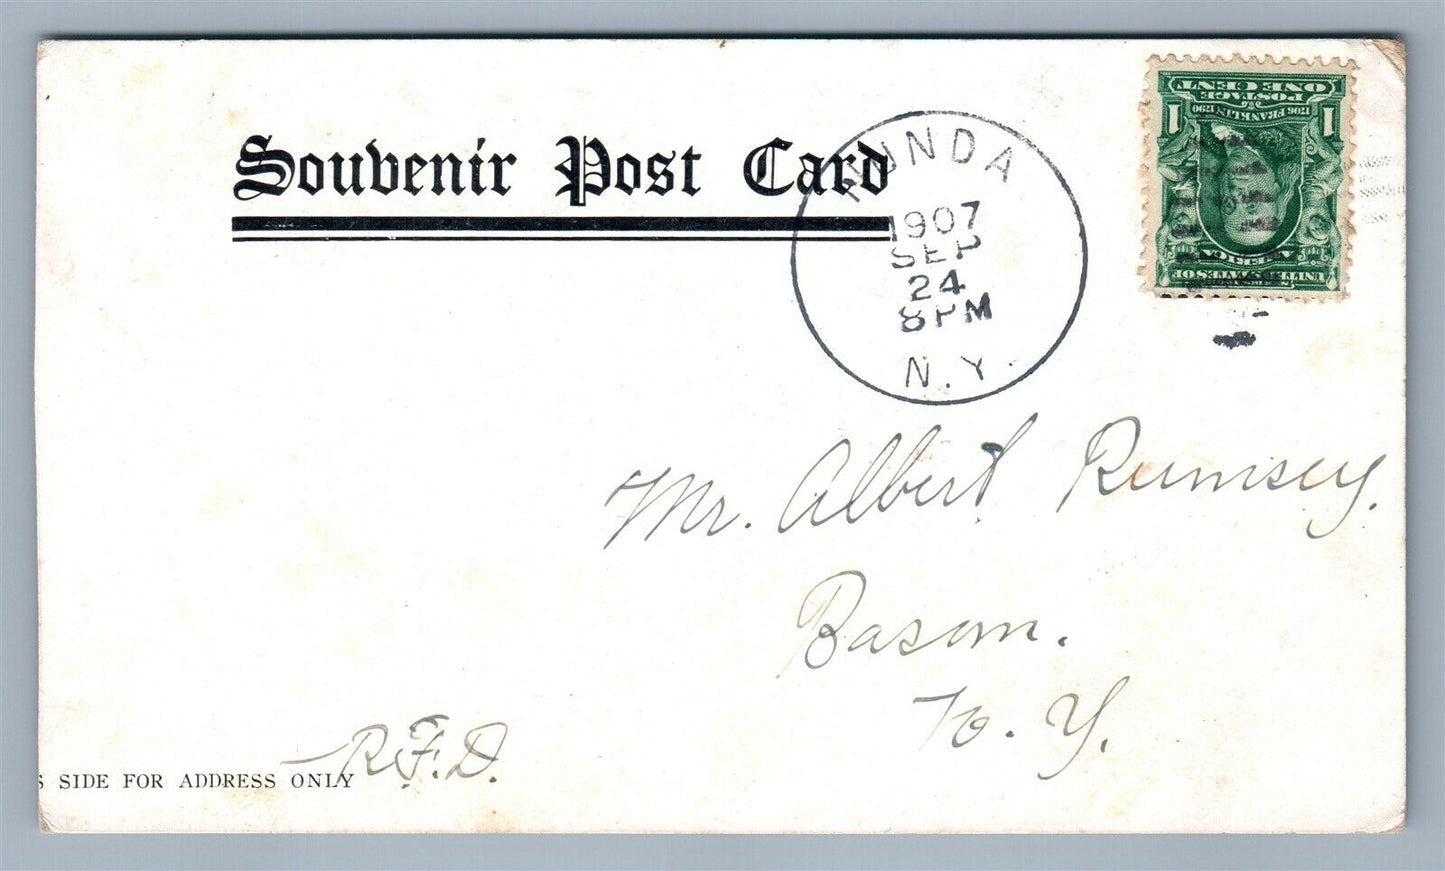 Souvenir Post Card
NUNDA
1907
SEP
24
8 PM
N.Y.
1 POSTAGE ONE CENT 1
1706 FRANKLIN 1790
UNITED STATES OF
AMERICA
Mr. Albert Rumsey.
Basom.
N. Y.
R.F.D.
S SIDE FOR ADDRESS ONLY